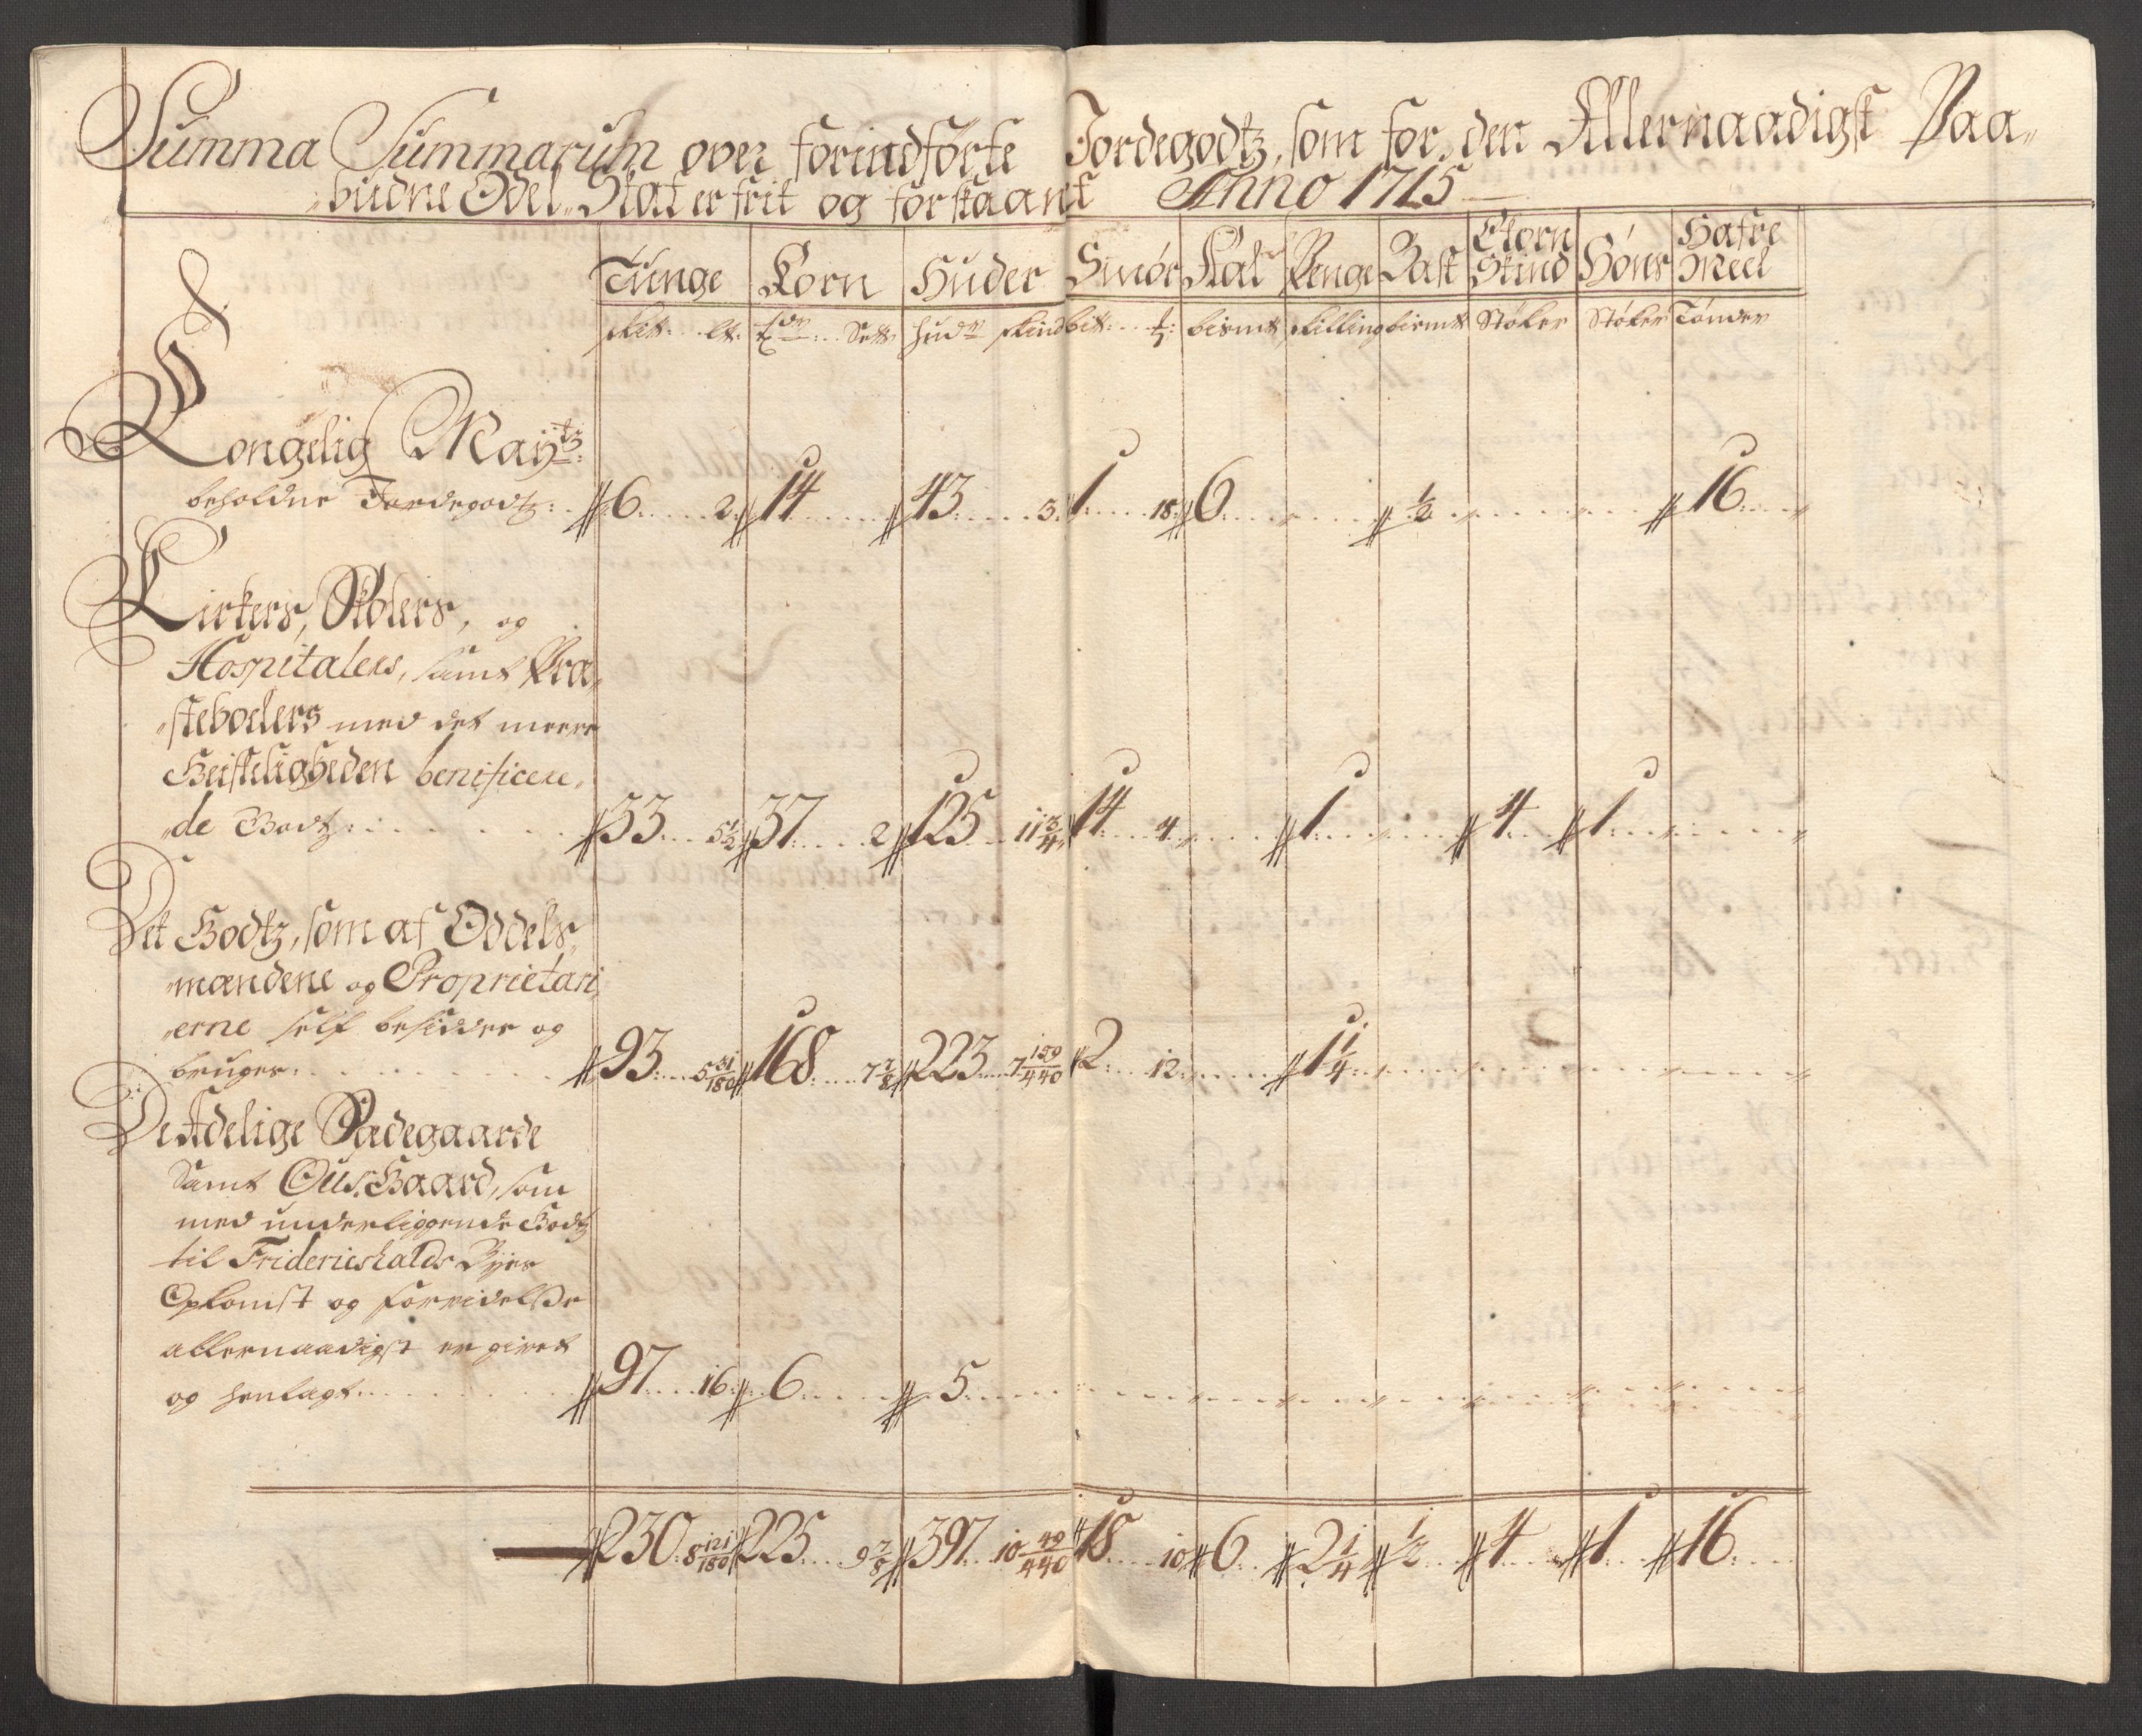 Summa Summarum over forindførte Jordegodtz, som for den Allernaadigst Paa„
„budne Odel„Skat er frit og forskaant Anno 1715
Tunge Korn Huder Smör Kal Penge Bast Giorn Skind Höns Hafre Meel
skit: lt: Sett: hudr skind bit: bismt skilling bismt Støker Støker Tønder
Kongelig Mayts:
beholdne Jordegodtz: 6 2 14 43 3 1 18 6 1/2 16
Kirkers, Skolers, og
Hospitalers, samt Præ„
„stebolers med det meere
Geisteligheden benificere„
„de Godtz: 33 5½ 37 2 125 11¾ 14 4 1 4 1
Det Godtz, som af Oddels„
„mændene og Proprietari„
„erne self besidder og
bruger 93 5 31/180 168 7⅞ 223 7 159/440 2 12 1¼
De Adelige Sædegaarde
Samt Ous Gaard, som
med underliggende Godtz
til Fridericshalds Byes
Opkomst og forridelse
allernaadigst er givet
og henlagt 97 16 6 5
230 8 121/180 225 9⅞ 397 10 49/440 18 10 6 2¼ ½ 4 1 16